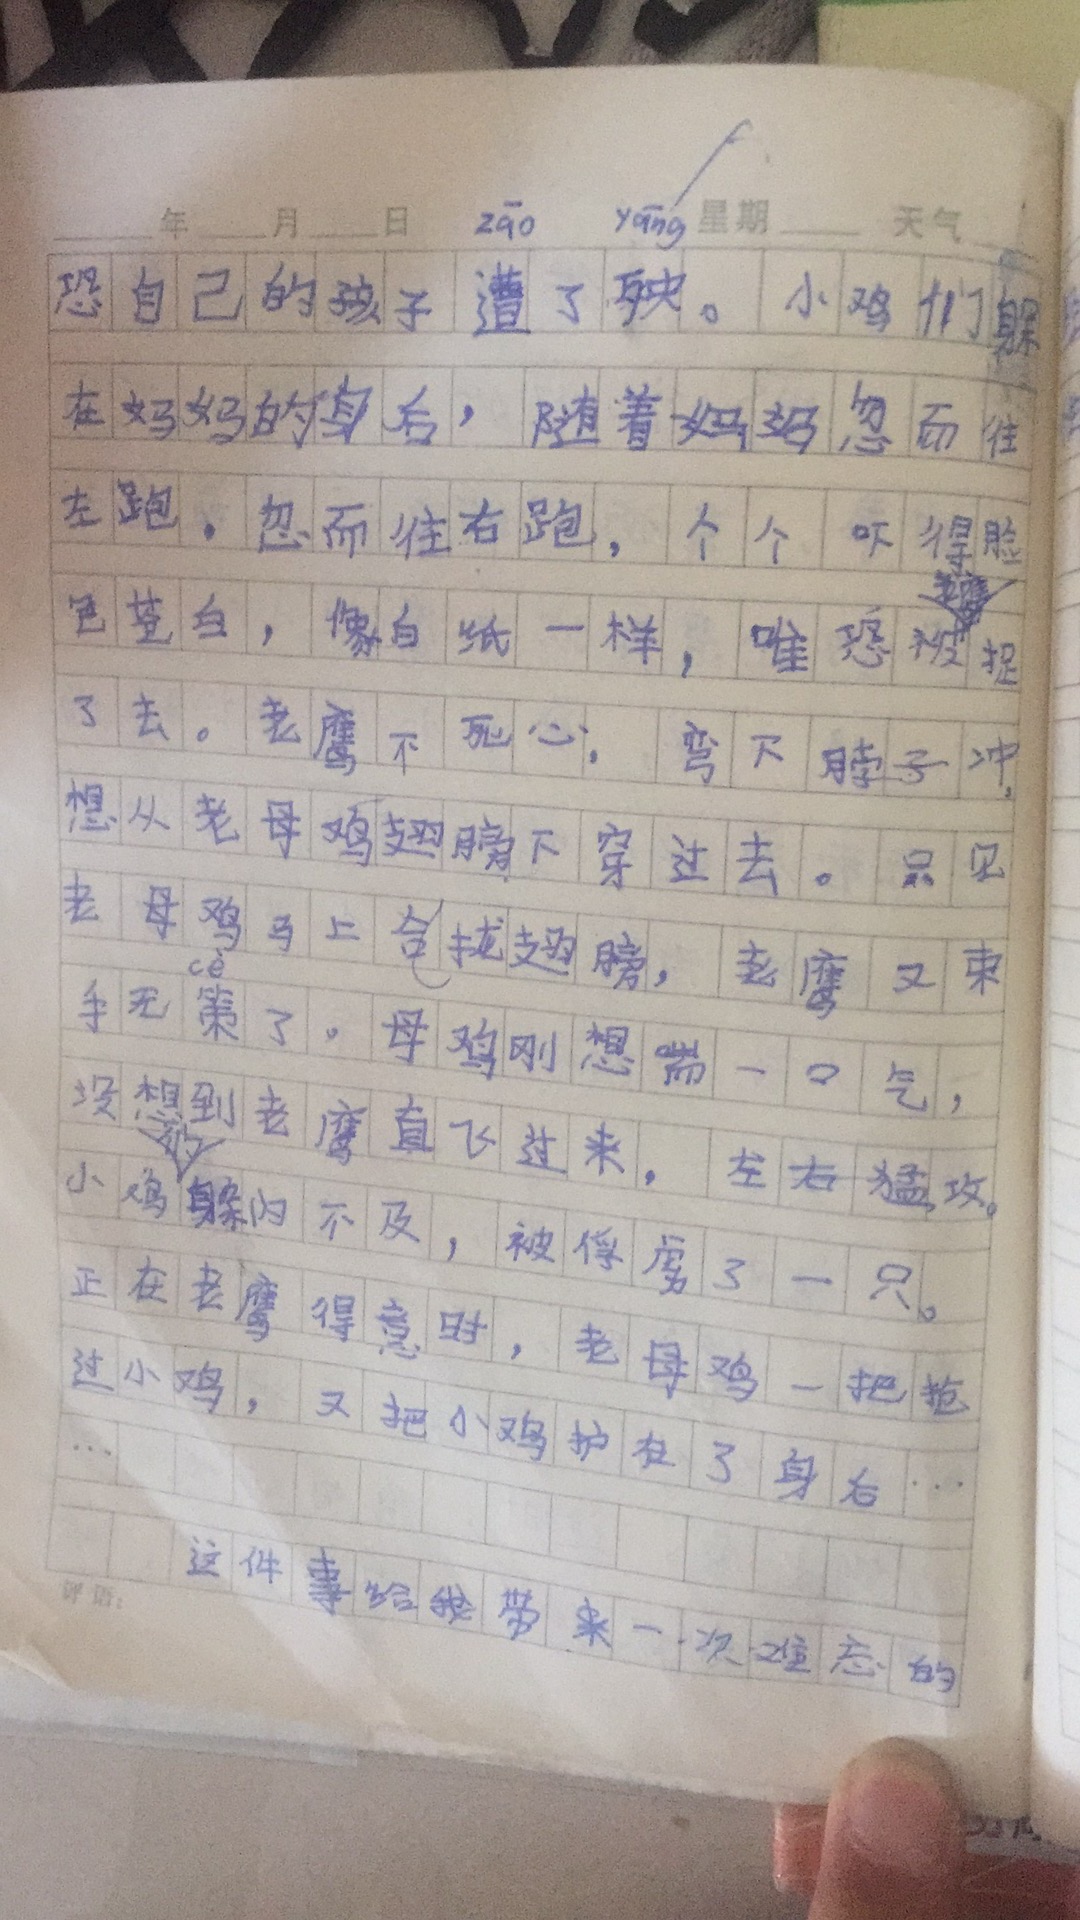 zāo yāng
年 月 日 星期 天气
恐自己的孩子遭了殃。小鸡们躲
在妈妈的身后，随着妈妈忽而往
左跑，忽而往右跑，个个吓得脸
色茎白，像白纸一样，唯恐被老鹰捉
了去。老鹰不死心，弯下脖子冲，
想从老母鸡翅膀下穿过去。只见
老母鸡马上合拢翅膀，老鹰又束
cè
手无策了。母鸡刚想喘一口气，
没想到老鹰直飞过来，左右猛攻。
小鸡躲闪不及，被俘虏了一只。
正在老鹰得意时，老母鸡一把抢
过小鸡，又把小鸡护在了身后…
…
这件事给我带来一次难忘的
评语：